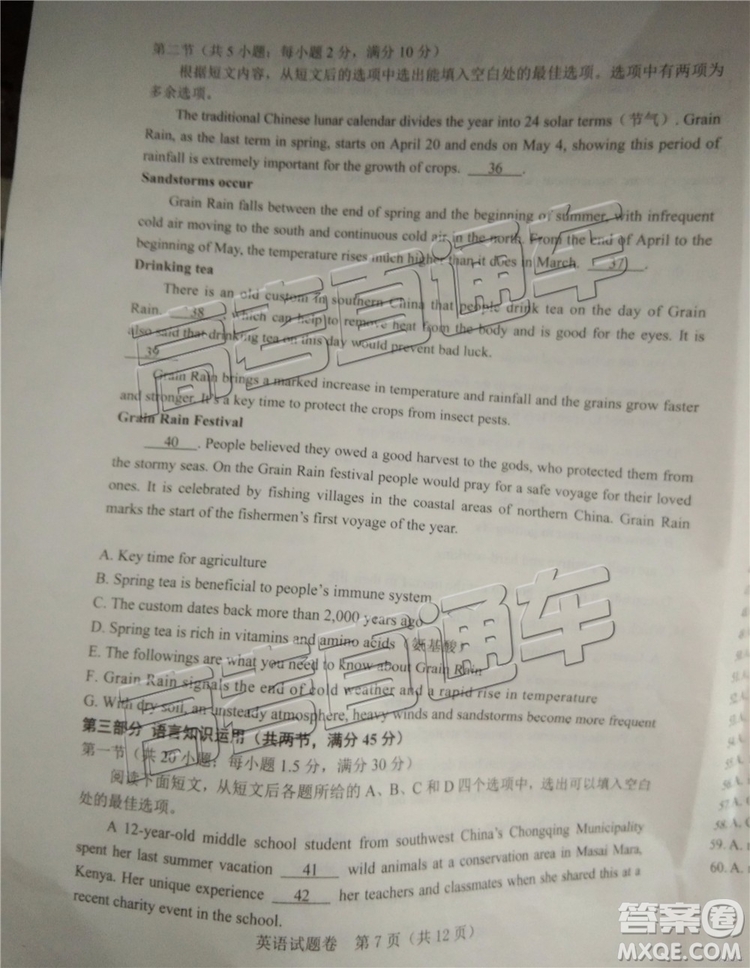 第二节（共 5 小题；每小题 2 分，满分 10 分）
根据短文内容，从短文后的选项中选出能填入空白处的最佳选项。选项中有两项为
多余选项。
The traditional Chinese lunar calendar divides the year into 24 solar terms（节气）. Grain
Rain, as the last term in spring, starts on April 20 and ends on May 4, showing this period of
rainfall is extremely important for the growth of crops. 36 .
Sandstorms occur
Grain Rain falls between the end of spring and the beginning of summer, with infrequent
cold air moving to the south and continuous cold air in the north. From the end of April to the
beginning of May, the temperature rises much higher than it does in March. 37 .
Drinking tea
There is an old custom in southern China that people drink tea on the day of Grain
Rain. 38 , which can help to remove heat from the body and is good for the eyes. It is
also said that drinking tea on this day would prevent bad luck.
39
Grain Rain brings a marked increase in temperature and rainfall and the grains grow faster
and stronger. It's a key time to protect the crops from insect pests.
Grain Rain Festival
40 . People believed they owed a good harvest to the gods, who protected them from
the stormy seas. On the Grain Rain festival people would pray for a safe voyage for their loved
ones. It is celebrated by fishing villages in the coastal areas of northern China. Grain Rain
marks the start of the fishermen's first voyage of the year.
A. Key time for agriculture
B. Spring tea is beneficial to people's immune system
C. The custom dates back more than 2,000 years ago
D. Spring tea is rich in vitamins and amino acids（氨基酸）
E. The followings are what you need to know about Grain Rain
F. Grain Rain signals the end of cold weather and a rapid rise in temperature
G. With dry soil, an unsteady atmosphere, heavy winds and sandstorms become more frequent
第三部分 语言知识运用（共两节，满分 45 分）
第一节（共 20 小题；每小题 1.5 分，满分 30 分）
阅读下面短文，从短文后各题所给的 A、B、C 和 D 四个选项中，选出可以填入空白
处的最佳选项。
A 12-year-old middle school student from southwest China's Chongqing Municipality
spent her last summer vacation 41 wild animals at a conservation area in Masai Mara,
Kenya. Her unique experience 42 her teachers and classmates when she shared this at a
recent charity event in the school.
英语试题卷 第 7 页（共 12 页）
57. A.
58. A.
59. A.
60. A.
高考直通车
高考直通车
答案圈
MXQE.COM